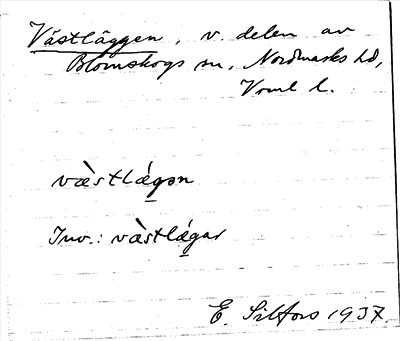 Västläggen, v. delen av
Blomskogs sn, Nordmarks hd,
Vrml l.
væ̀stlǽgən
Inv.: væ̀stlǽgar
E. Silfors 1937.